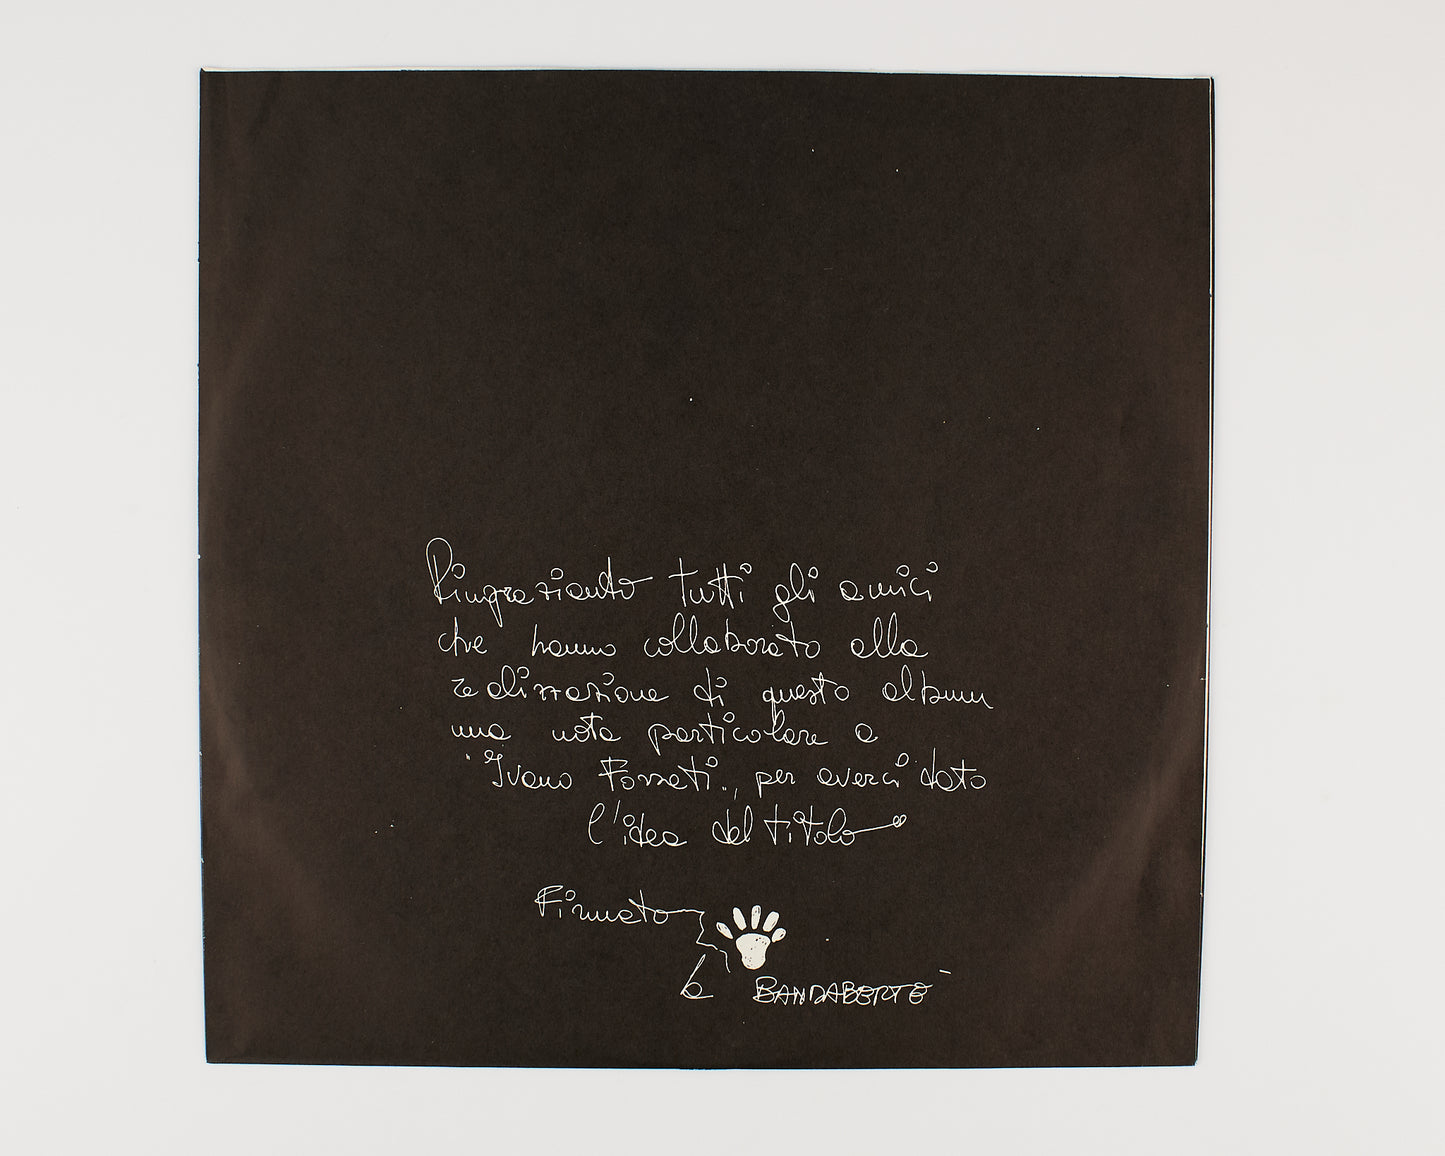 Ringraziando tutti gli amici
che hanno collaborato alla
realizzazione di questo album
una nota particolare a
"Ivano Fossati", per averci dato
l'idea del titolo
Firmato
la BANDABERTÈ